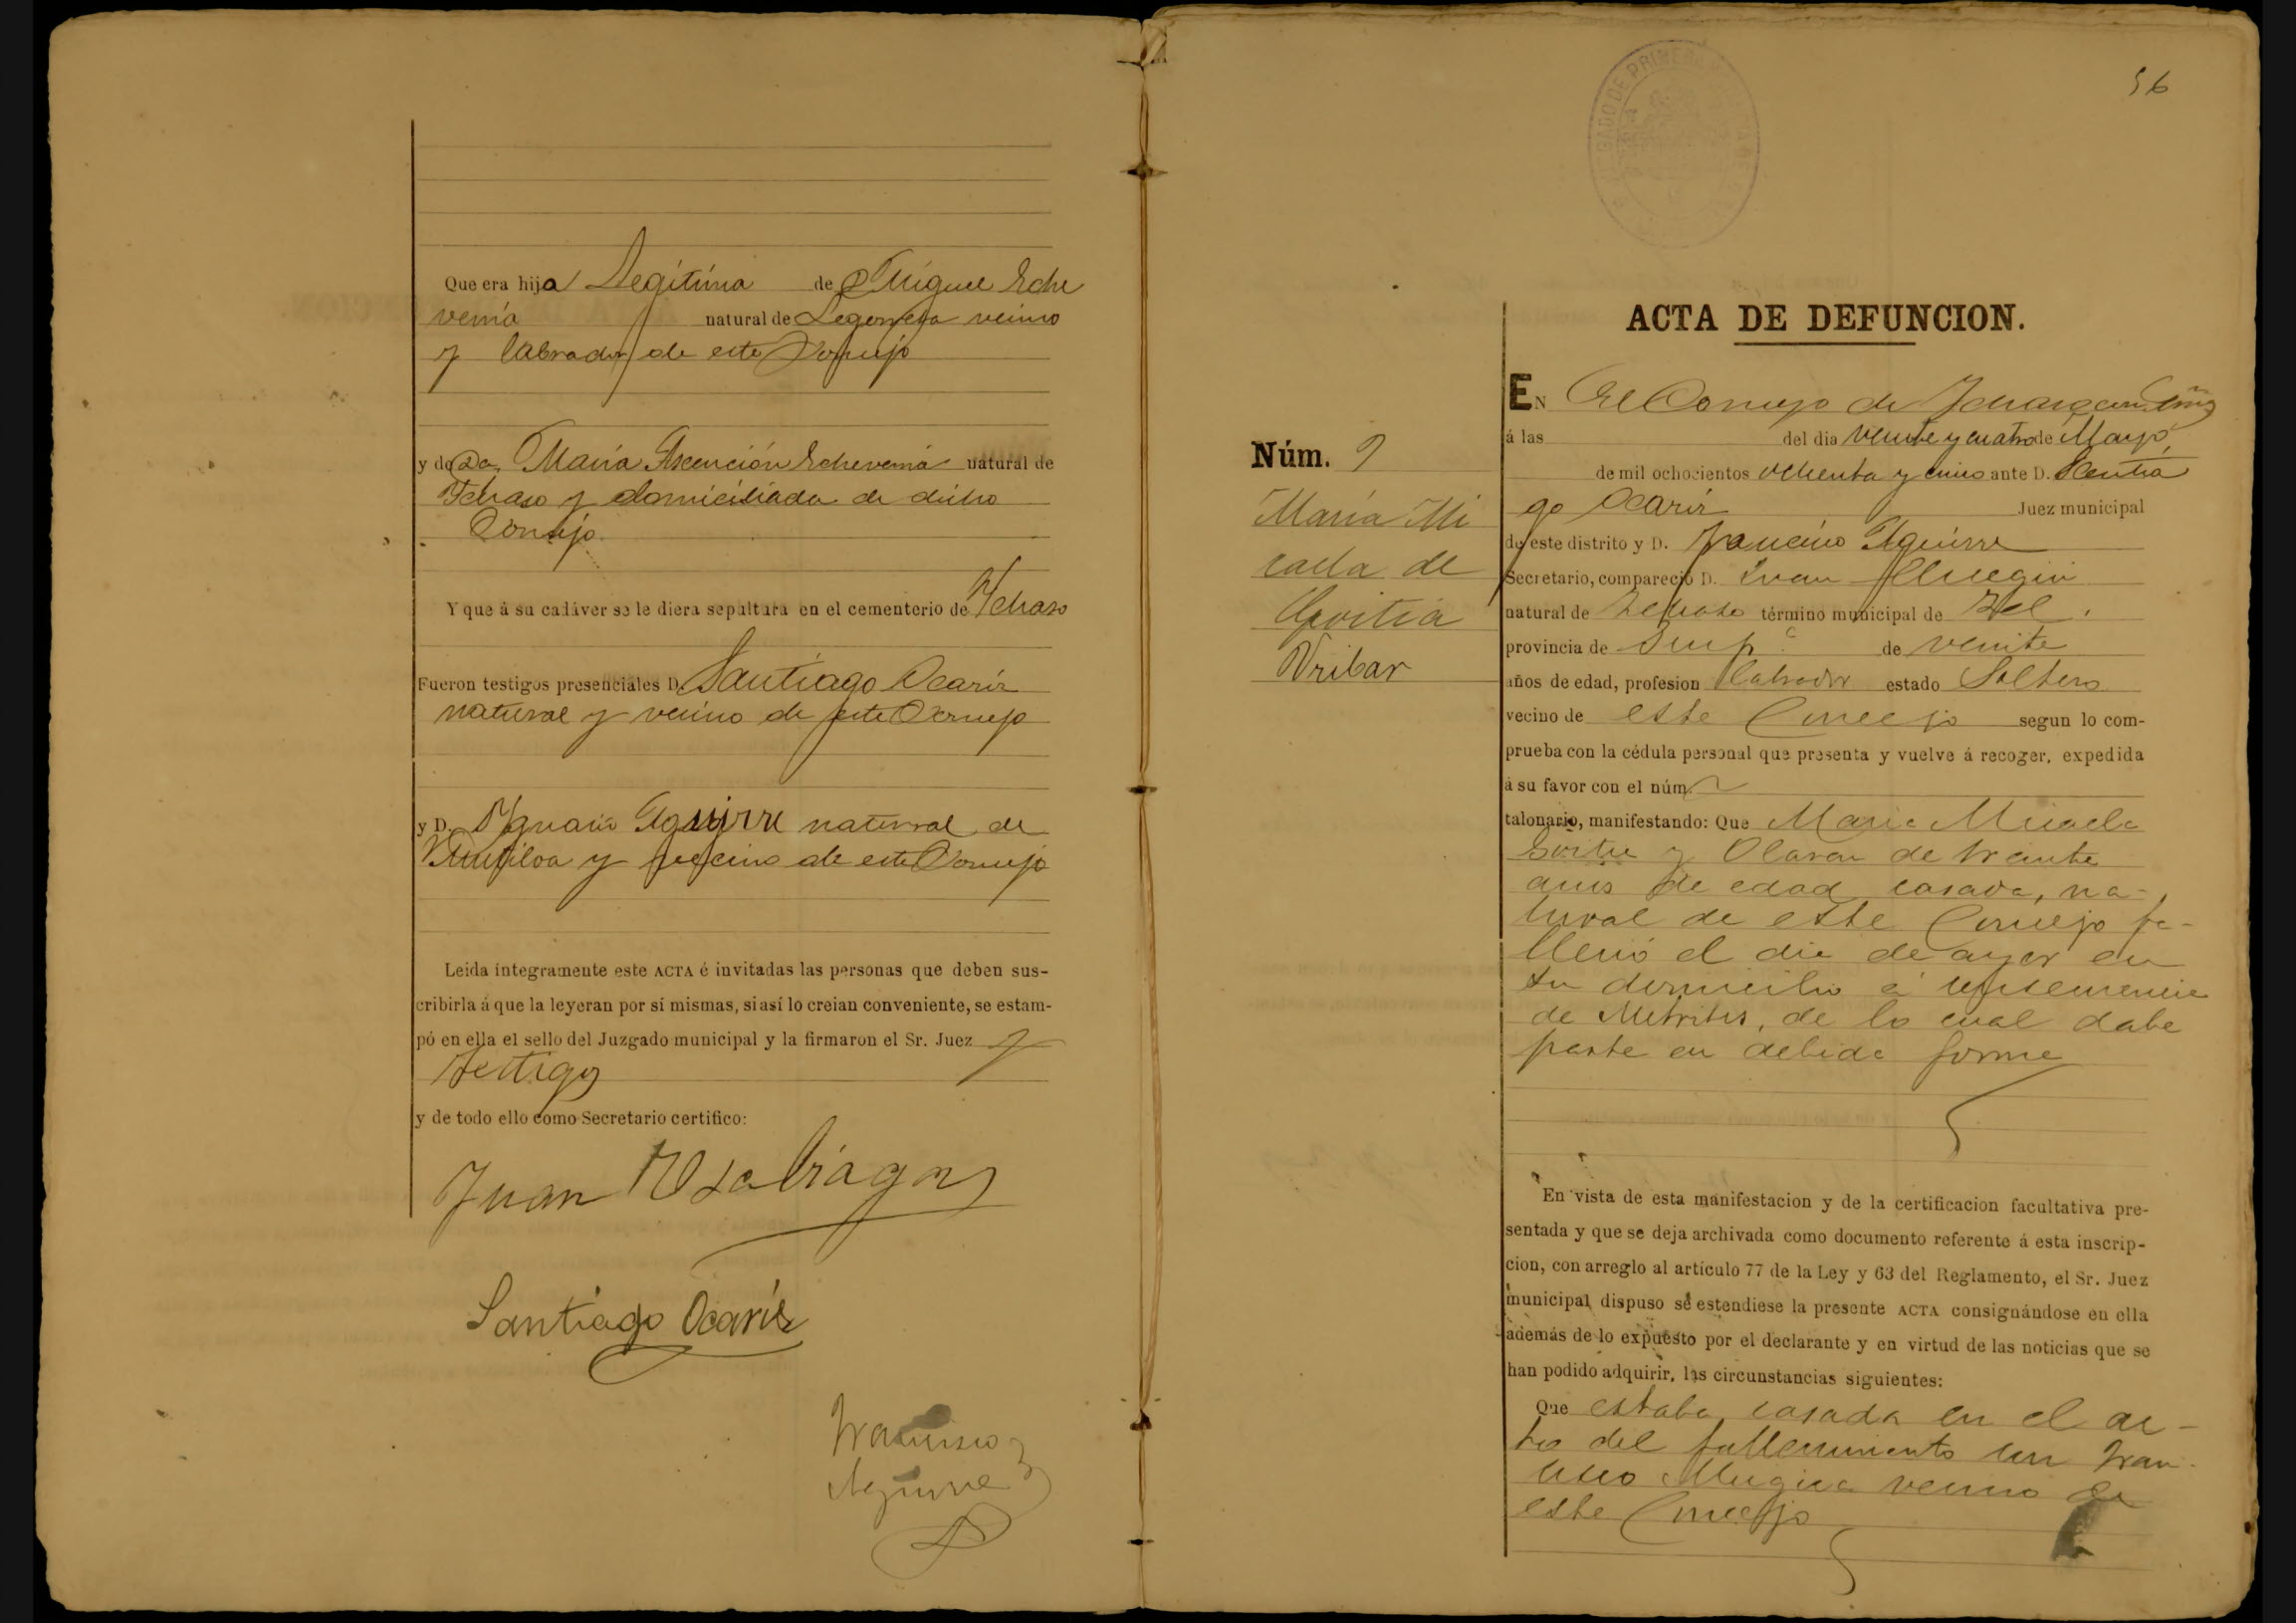 Que era hija Legitima de D Miguel Eche
verria natural de Legorreta vecino
y labrador de este Concejo
y de Da Maria Ascención Echeverria natural de
Ichaso y domiciliada de dicho
Concejo.
Y que á su cadáver se le diera sepultura en el cementerio de Ychaso
Fueron testigos presenciales D. Santiago Ocariz
natural y vecino de este Concejo
y D. Ygnacio Aguirre natural de
Mutiloa y vecino de este Concejo
Leida íntegramente este ACTA é invitadas las personas que deben sus-
cribirla á que la leyeran por sí mismas, si así lo creian conveniente, se estam-
pó en ella el sello del Juzgado municipal y la firmaron el Sr. Juez y
testigos
y de todo ello como Secretario certifico:
Juan Usabiaga
Santiago Ocariz
Francisco
Aguirre
56
JUZGADO DE PRIMERA
ACTA DE DEFUNCION.
Núm. 9
Maria Mi
caela de
Goitia
EN El Concejo de Ichaso
á las del dia veinte y cuatro de Mayo
de mil ochocientos ochenta y cinco ante D. Santia
go Ocariz Juez municipal
de este distrito y D. Francisco Aguirre
Secretario, compareció D. Juan
natural de Ichaso término municipal de id.
provincia de Guip.c de veinte
años de edad, profesion labrador estado Soltero
vecino de este Concejo segun lo com-
prueba con la cédula personal que presenta y vuelve á recoger, expedida
á su favor con el núm.
talonario, manifestando: Que Maria Micaela
Goitia y Olaran de treinta
años de edad, casada, na-
tural de este Concejo fa-
lleció el dia de ayer en
su domicilio á consecuencia
de Metritis, de lo cual daba
parte en debida forma
En vista de esta manifestacion y de la certificacion facultativa pre-
sentada y que se deja archivada como documento referente á esta inscrip-
cion, con arreglo al artículo 77 de la Ley y 63 del Reglamento, el Sr. Juez
municipal dispuso se estendiese la presente ACTA consignándose en ella
además de lo expuesto por el declarante y en virtud de las noticias que se
han podido adquirir, las circunstancias siguientes:
Que estaba casada en el ac-
to del fallecimiento con Fran-
cisco Mugica vecino de
este Concejo